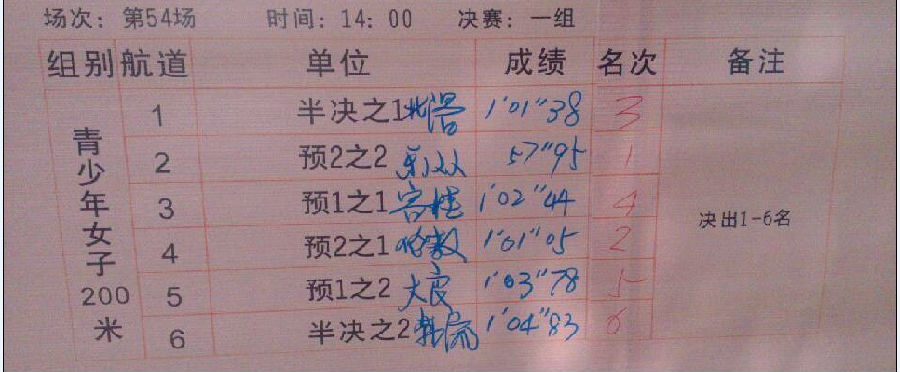 场次：第54场 时间：14：00 决赛：一组
组别 航道 单位 成绩 名次 备注
青少年女子200米
1 半决之1北滘 1'01"38 3
2 预2之2 乐从 57"95 1
3 预1之1容桂 1'02"44 4
4 预2之1伦教 1'01"05 2
5 预1之2 大良 1'03"78 5
6 半决之2 1'04"83 6
决出1-6名